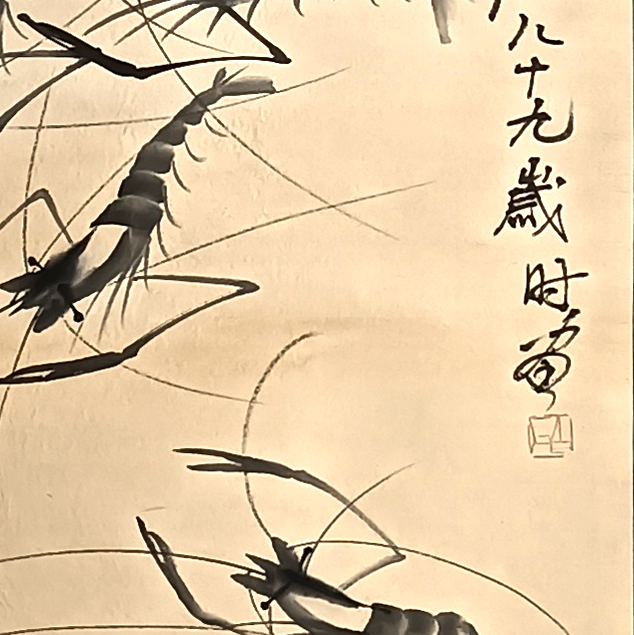 八十九歲时画